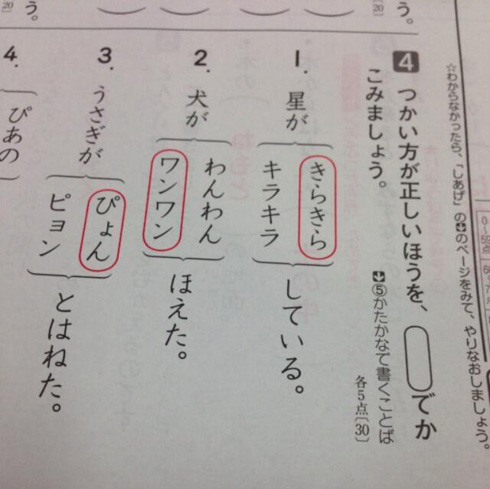 ☆わからなかったら、「しあげ」の⬇のページをみて、やりなおしましょう。
4 つかい方が正しいほうを、 でか
こみましょう。
⬇⑤かたかなで書くことば
各5点〔30〕
1. 星が きらきら している。
キラキラ
2. 犬が わんわん ほえた。
ワンワン
3. うさぎが ぴょん とはねた。
ピョン
4. ぴあの
う。